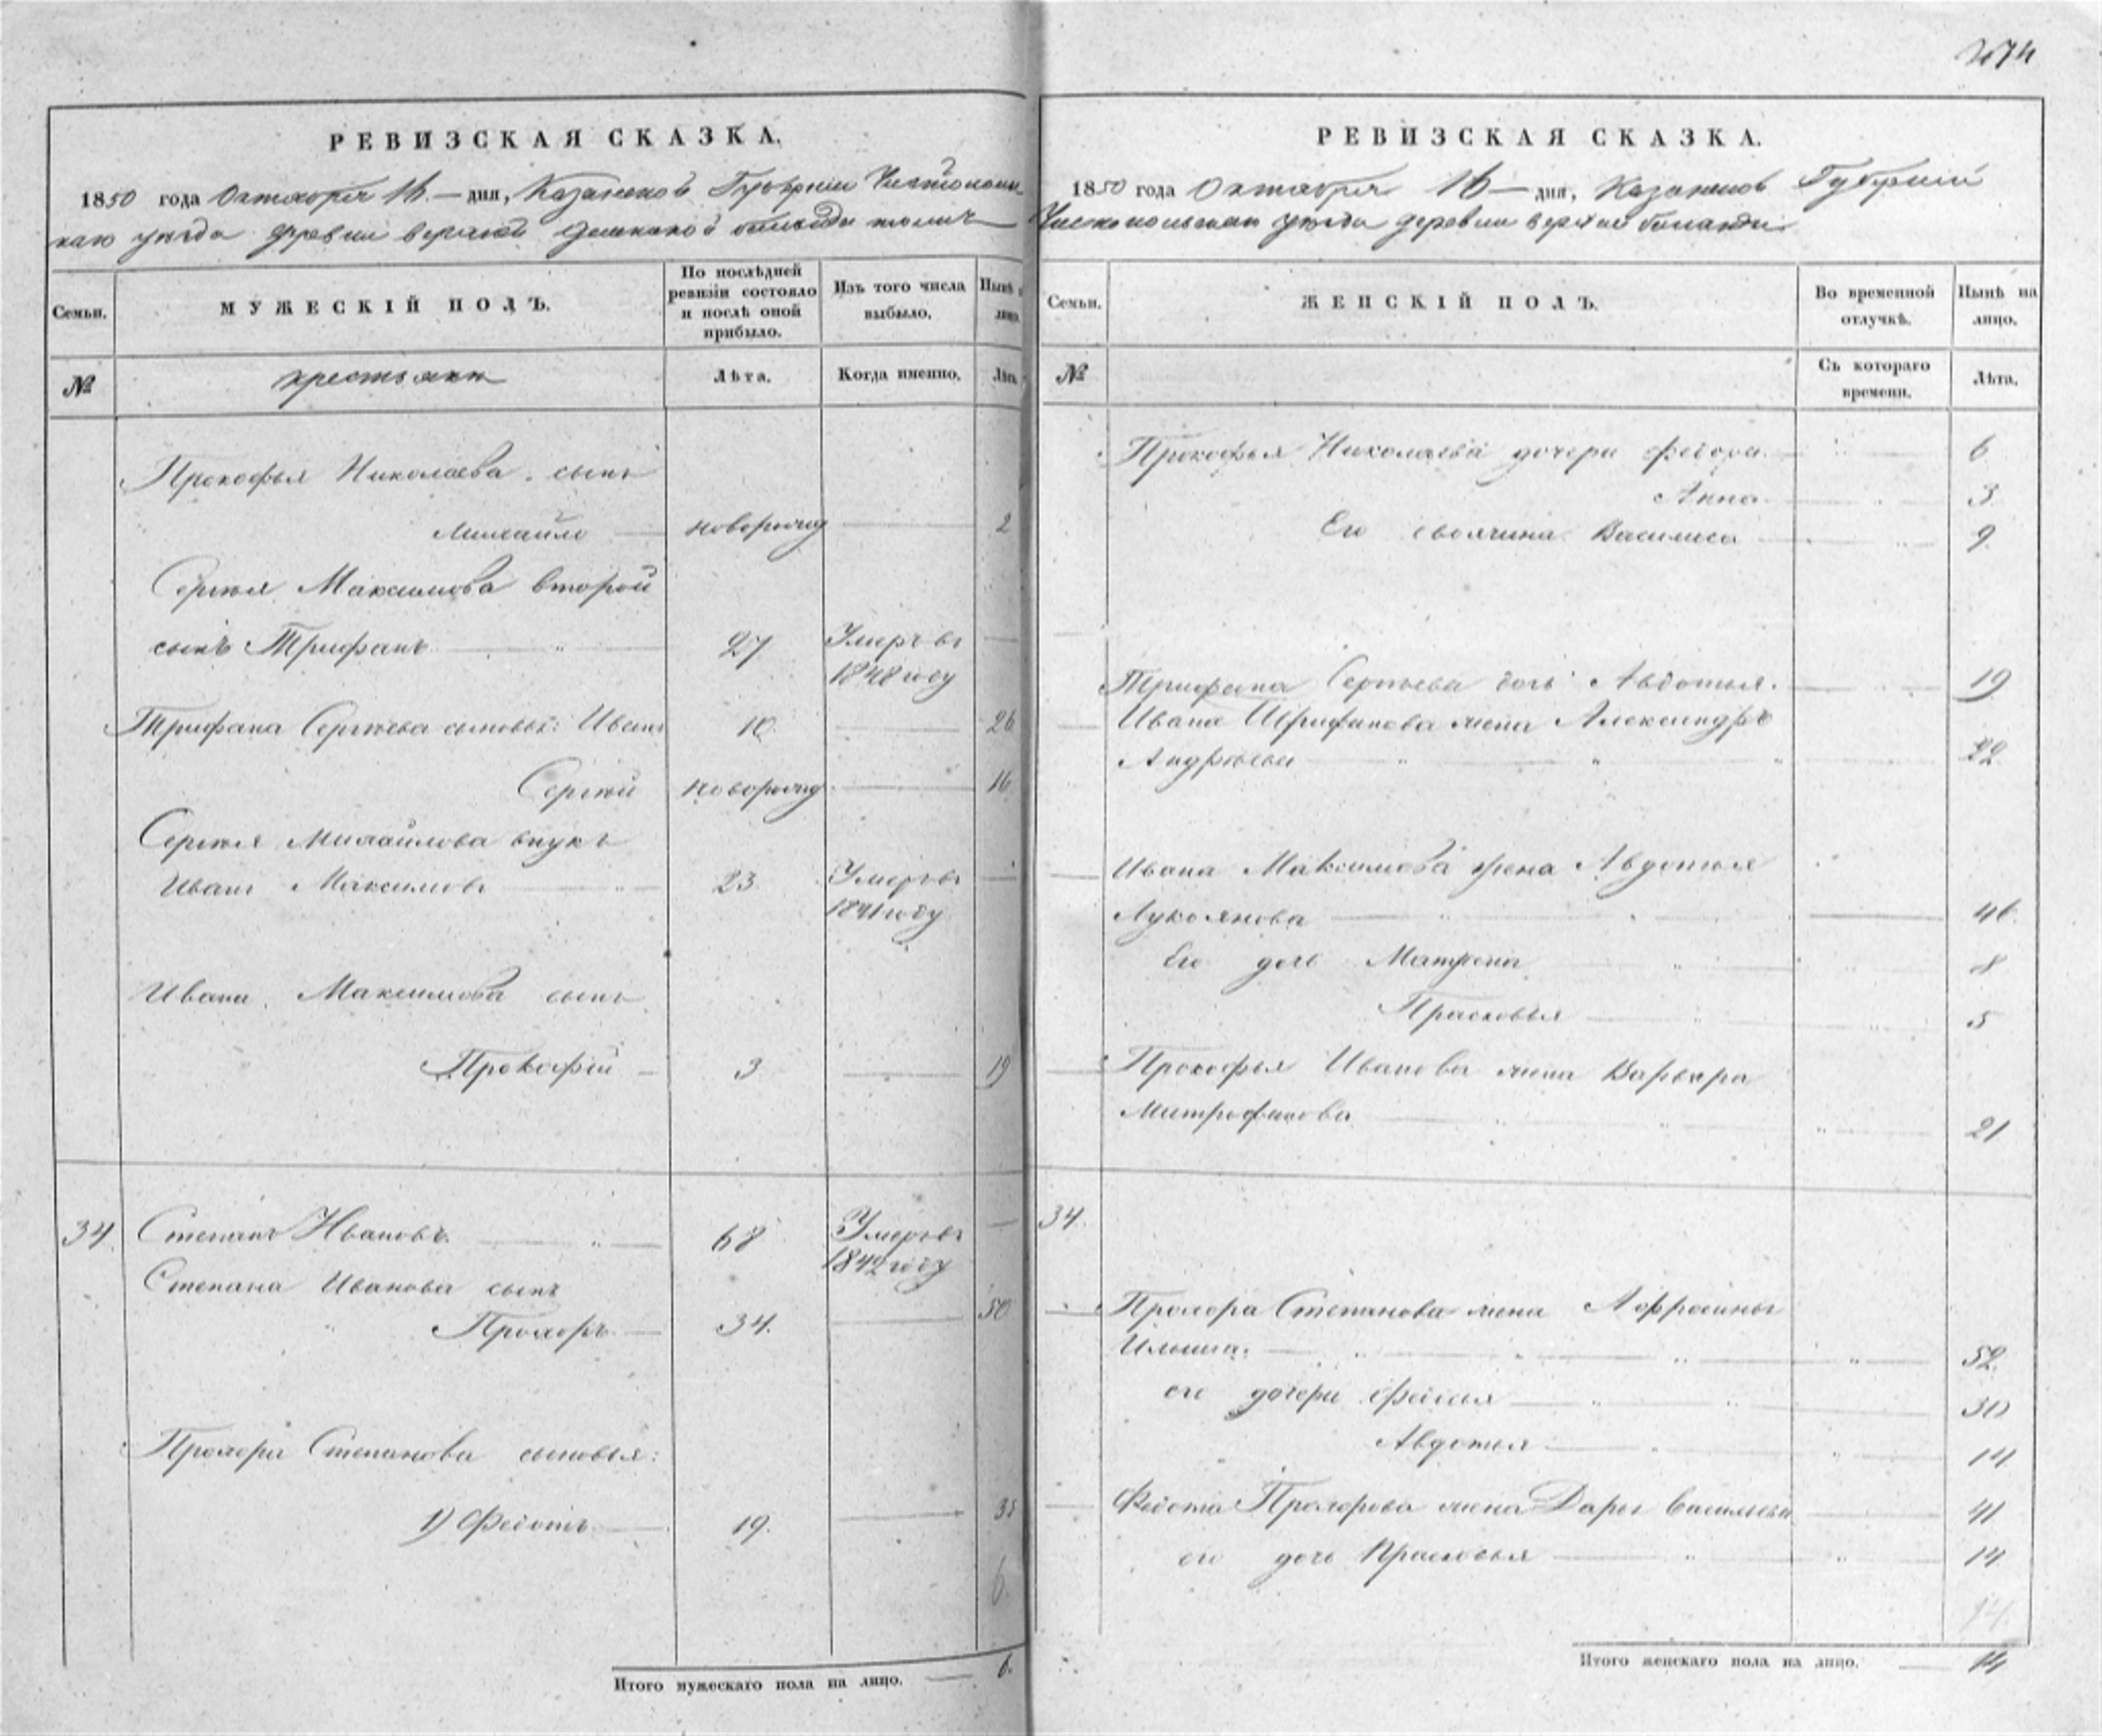 274
РЕВИЗСКАЯ СКАЗКА.
1850 года Октября 16 — дня, Казанской Губернии Чистополь
скаго уезда деревни верхней
Семьи. МУЖЕСКІЙ ПОЛЪ. По послѣдней ревизіи состояло и послѣ оной прибыло. Изъ того числа выбыло. Нынѣ на лицо.
№ крестьяне Лѣта. Когда именно. Лѣта.
Прокофья Николаева сынъ
Михайло — новорожд — 2
Сергѣя Максимова второй
сынъ Трифанъ — 27 Умеръ въ —
1848 году
Трифана Сергѣева сыновья: Иванъ 10 — 26
Сергѣй новорожд — 16
Сергѣя Михайлова внукъ
Иванъ Максимовъ — 23 Умеръ въ —
1841 году
Ивана Максимова сынъ
Прокофій — 3 — 19
34 Степанъ Ивановъ — 68 Умеръ въ —
1842 году
Степана Иванова сынъ
Прохоръ — 34. — 50
Прохора Степанова сыновья:
1) Федотъ — 19. — 35
6.
Итого мужескаго пола на лицо. — 6.
РЕВИЗСКАЯ СКАЗКА.
1850 года Октября 16 — дня, Казанской Губерніи
Чистопольскаго уезда деревни верхней
Семьи. ЖЕНСКІЙ ПОЛЪ. Во временной отлучкѣ. Нынѣ на лицо.
№ Съ котораго времени. Лѣта.
Прокофья Николаева дочери Федора — 6
Анна — 3
Его своячина Василиса — 9
Трифана Сергѣева дочь Авдотья. — 19
Ивана Трифанова жена Александра
Андрѣева — 22
Ивана Максимова жена Авдотья
Лукоянова — 46
Его дочь Матрена — 8
Прасковья — 5
Прокофья Иванова жена Варвара
Митрофанова — 21
34.
Прохора Степанова жена
Ильина. — 52.
его дочери — 30
Авдотья — 14
Федота Прохорова жена Дарья Васильева — 41
его дочь Прасковья — 14
14
Итого женскаго пола на лицо. — 14